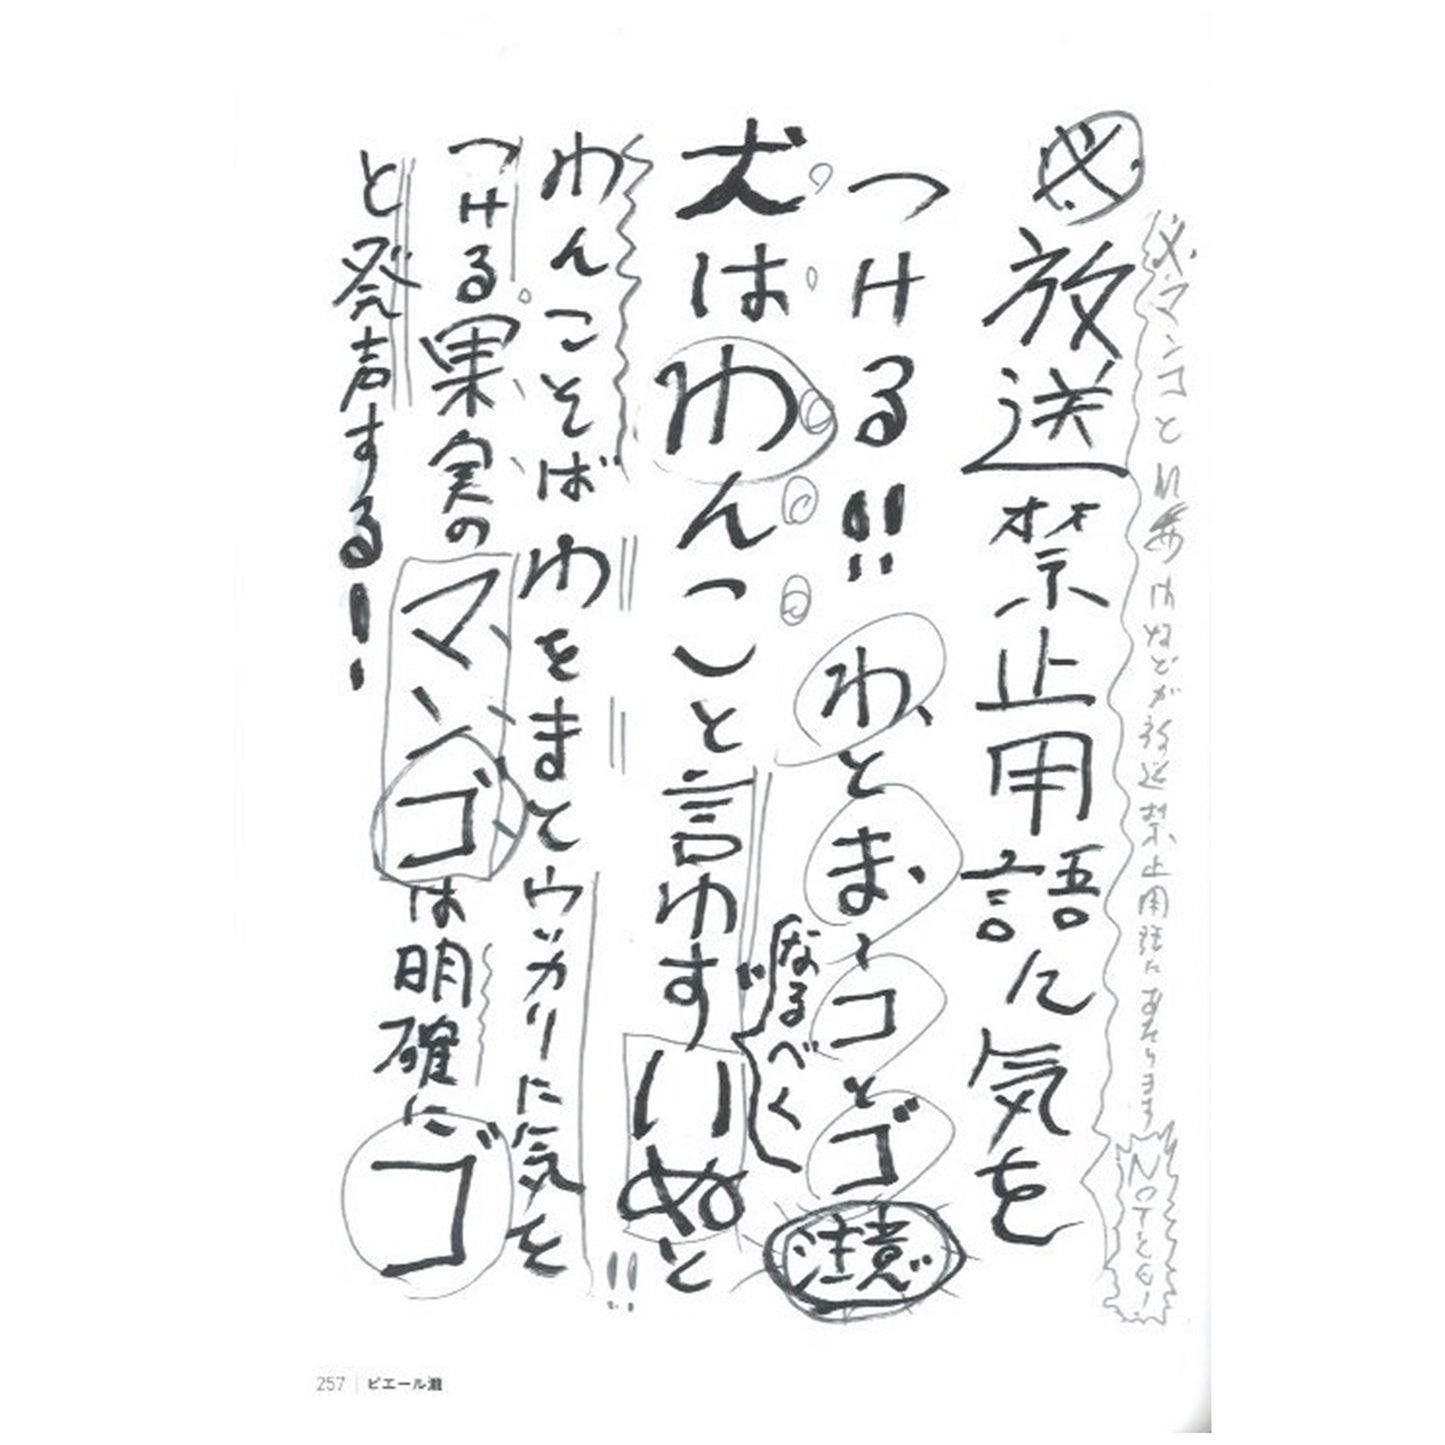 マンコと
などが放送禁止用語にあたります
NOTと
㊙放送禁止用語に気を
つける!! わ、とま、コとゴ注意
犬はわんこと言わず
なるべく
いぬと
わんこそば わをまとウッカリに気を
つける果実のマンゴは明確にゴ
と発声する!
257 ピエール瀧